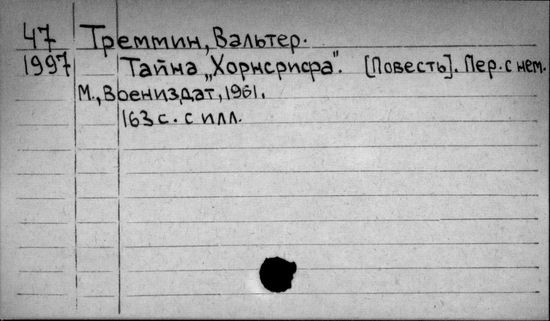 47 Треммин, Вальтер.
1997 Тайна „Хорнсрифа". [Повесть]. Пер. с нем.
М., Воениздат, 1961.
163 с. с илл.